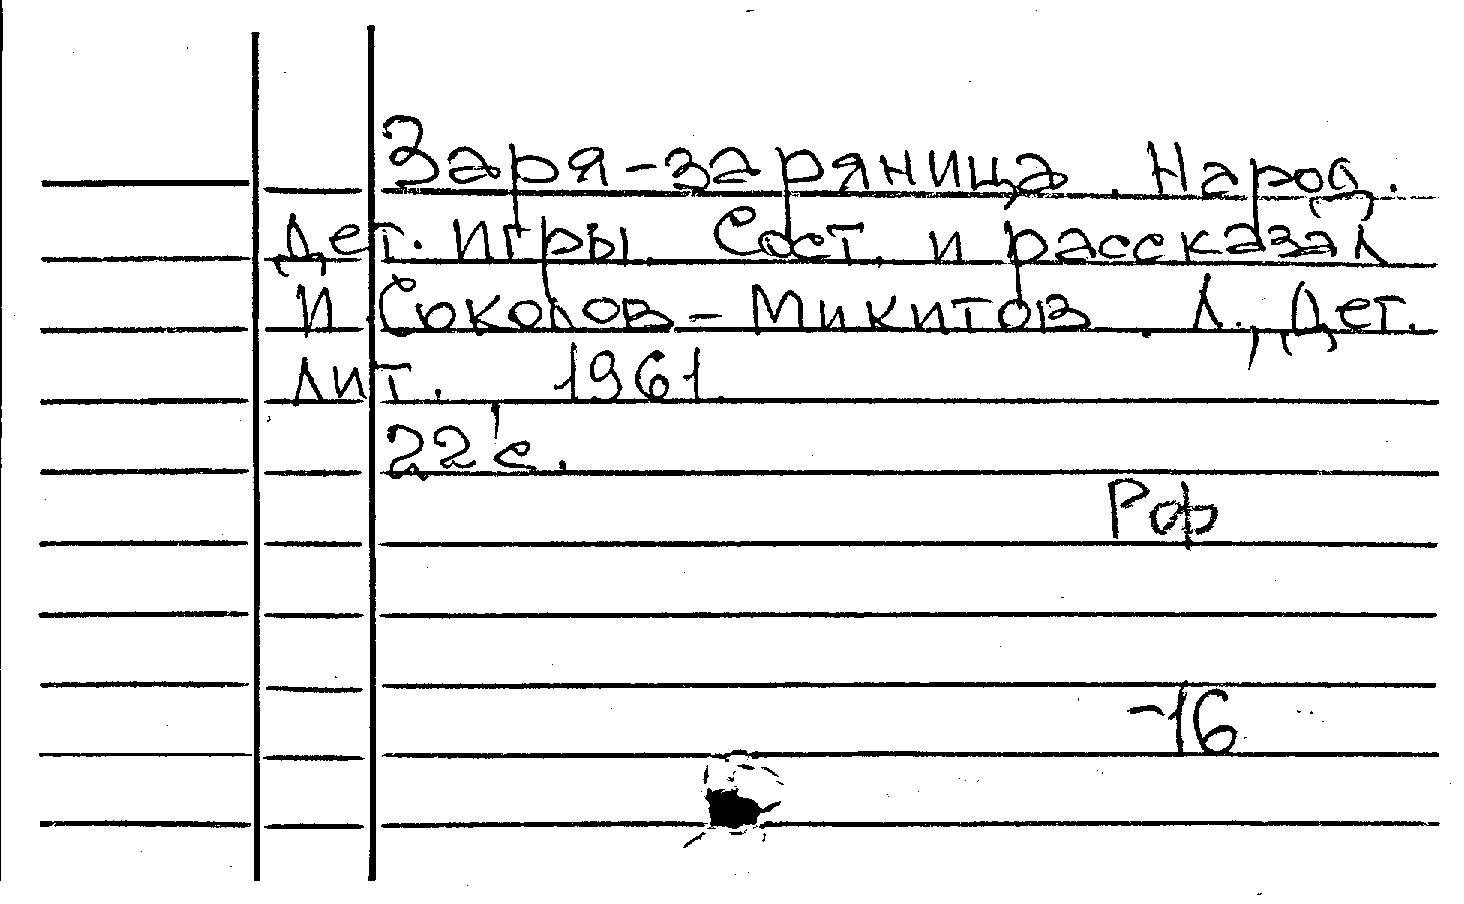 Заря-заряница. Народ.
дет. игры. Сост. и рассказал
И Соколов-Микитов. Л., Дет.
лит. 1961.
22 с.
Рф
-16